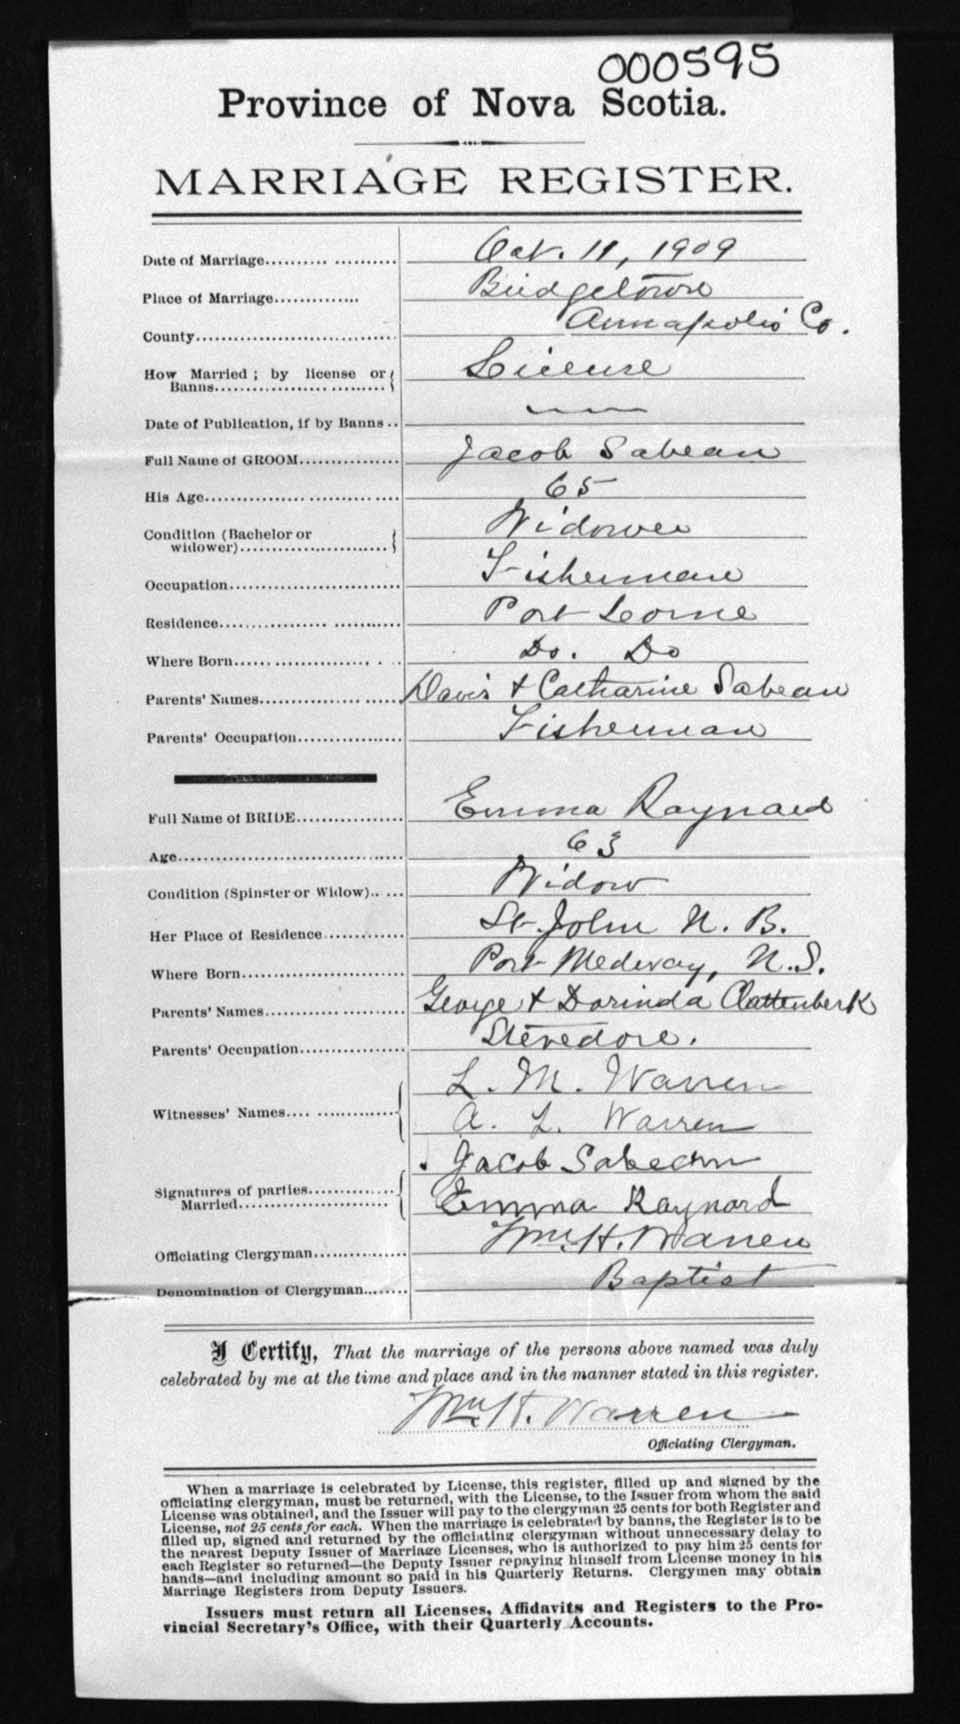 000595
Province of Nova Scotia.
MARRIAGE REGISTER.
Date of Marriage.......... .......... Oct. 11, 1909
Place of Marriage............. Bridgetown
County............................... Annapolis Co.
How Married ; by license or License
Banns..........................
Date of Publication, if by Banns .. 
Full Name of GROOM............... Jacob Sabean
His Age............................. 65
Condition (Bachelor or Widower
widower)..........................
Occupation......................... Fisherman
Residence.......... .......... Port Lorne
Where Born.................. . . Do. Do
Parents' Names.................... Davis & Catharine Sabean
Parents' Occupation............... Fisherman
Full Name of BRIDE................ Emma Raynard
Age.................................. 63
Condition (Spinster or Widow).. ... Widow
Her Place of Residence........... St. John N. B.
Where Born........................ Port Medway, N.S.
Parents' Names.................... George & Dorinda Clattenberk
Parents' Occupation............... Stevedore.
L. M. Warren
Witnesses' Names.... ............
A. L. Warren
Jacob Sabean
Signatures of parties.............
Married......................... Emma Raynard
Officiating Clergyman............. Wm. H. Warren
Denomination of Clergyman........ Baptist
I Certify, That the marriage of the persons above named was duly
celebrated by me at the time and place and in the manner stated in this register.
Wm. H. Warren
Officiating Clergyman.
When a marriage is celebrated by License, this register, filled up and signed by the
officiating clergyman, must be returned, with the License, to the Issuer from whom the said
License was obtained, and the Issuer will pay to the clergyman 25 cents for both Register and
License, not 25 cents for each. When the marriage is celebrated by banns, the Register is to be
filled up, signed and returned by the officiating clergyman without unnecessary delay to
the nearest Deputy Issuer of Marriage Licenses, who is authorized to pay him 25 cents for
each Register so returned—the Deputy Issuer repaying himself from License money in his
hands—and including amount so paid in his Quarterly Returns. Clergymen may obtain
Marriage Registers from Deputy Issuers.
Issuers must return all Licenses, Affidavits and Registers to the Pro-
vincial Secretary's Office, with their Quarterly Accounts.